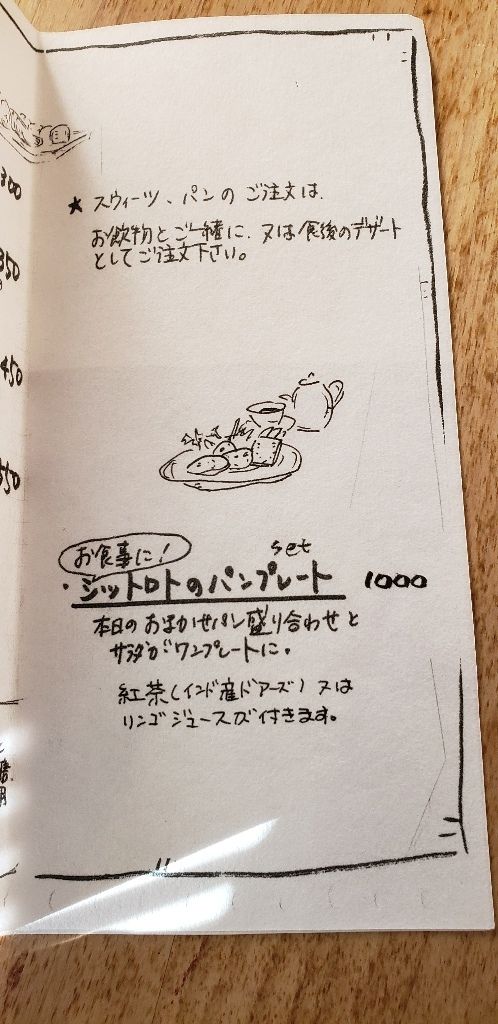 300
350
450
350
★ スウィーツ、パンの ご注文は、
お飲物と ご一緒に、又は食後のデザート
として ご注文下さい。
お食事に!
set
・ジットロトのパンプレート 1000
本日の おまかせパン盛り合わせと
サラダが ワンプレートに。
紅茶(インド産ドアーズ) 又は
リンゴジュースが付きます。